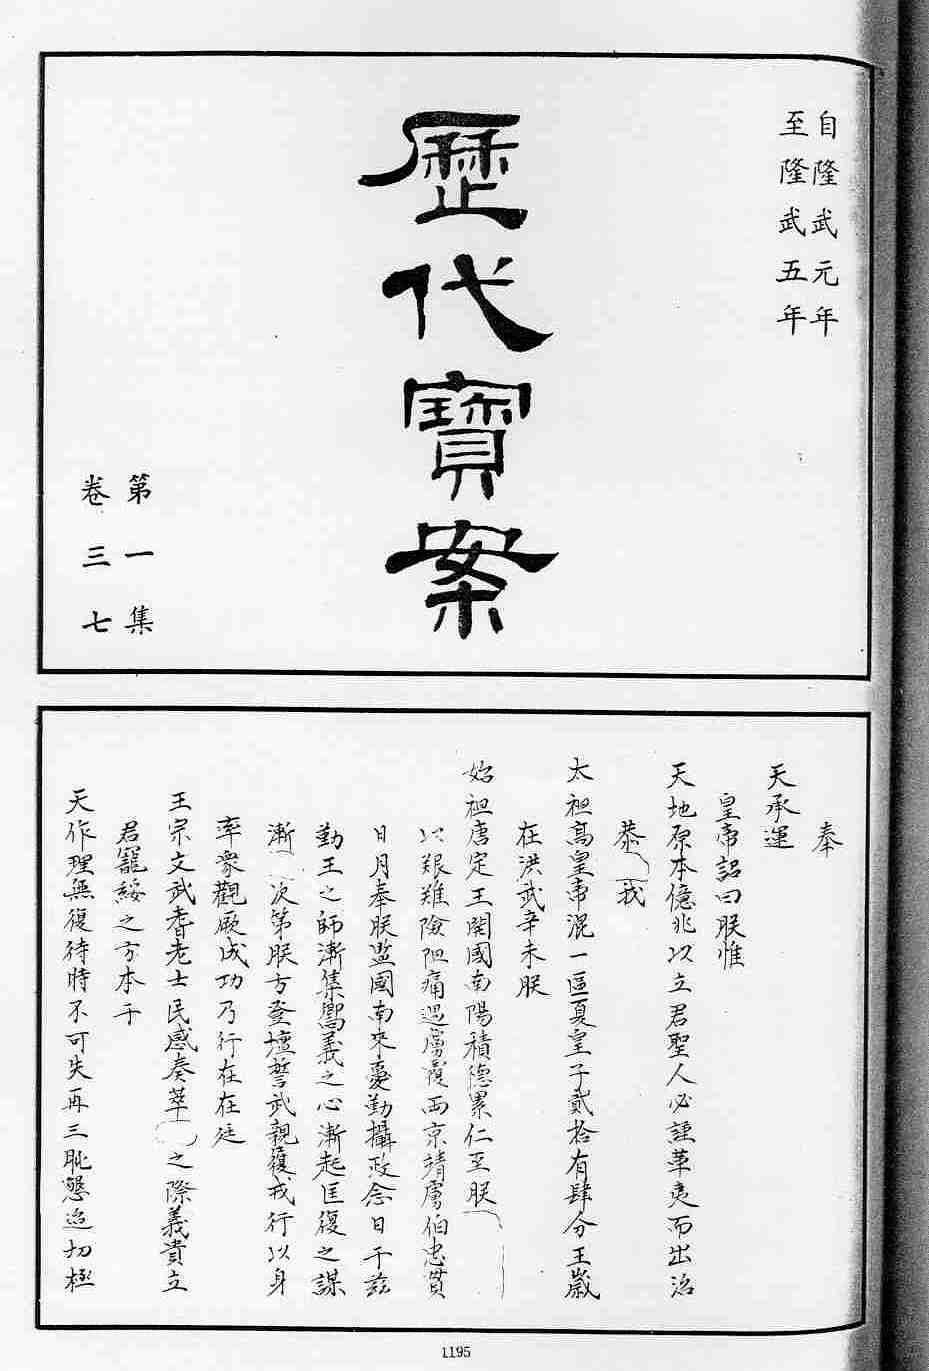 自隆武元年
至隆武五年
歷代寶案
第一集
卷三七
奉
天承運
皇帝詔曰朕惟
天地原本億兆以立君聖人必謹華夷而出治
恭 我
太祖高皇帝混一區夏皇子貳拾有肆分王歲
在洪武辛未朕
始祖唐定王開國南陽積德累仁至朕
以艱難險阻痛遇虜覆兩京靖虜伯忠貫
日月奉朕監國南來憂勤攝政念日于茲
勤王之師漸集嚮義之心漸起匡復之謀
漸 次第朕方登壇誓武親履戎行以身
率衆觀厥成功乃行在在廷
王宗文武耆老士民感奏萃 之際義貴立
君寵綏之方本于
天作理無復待時不可失再三 懇迨切極
1195